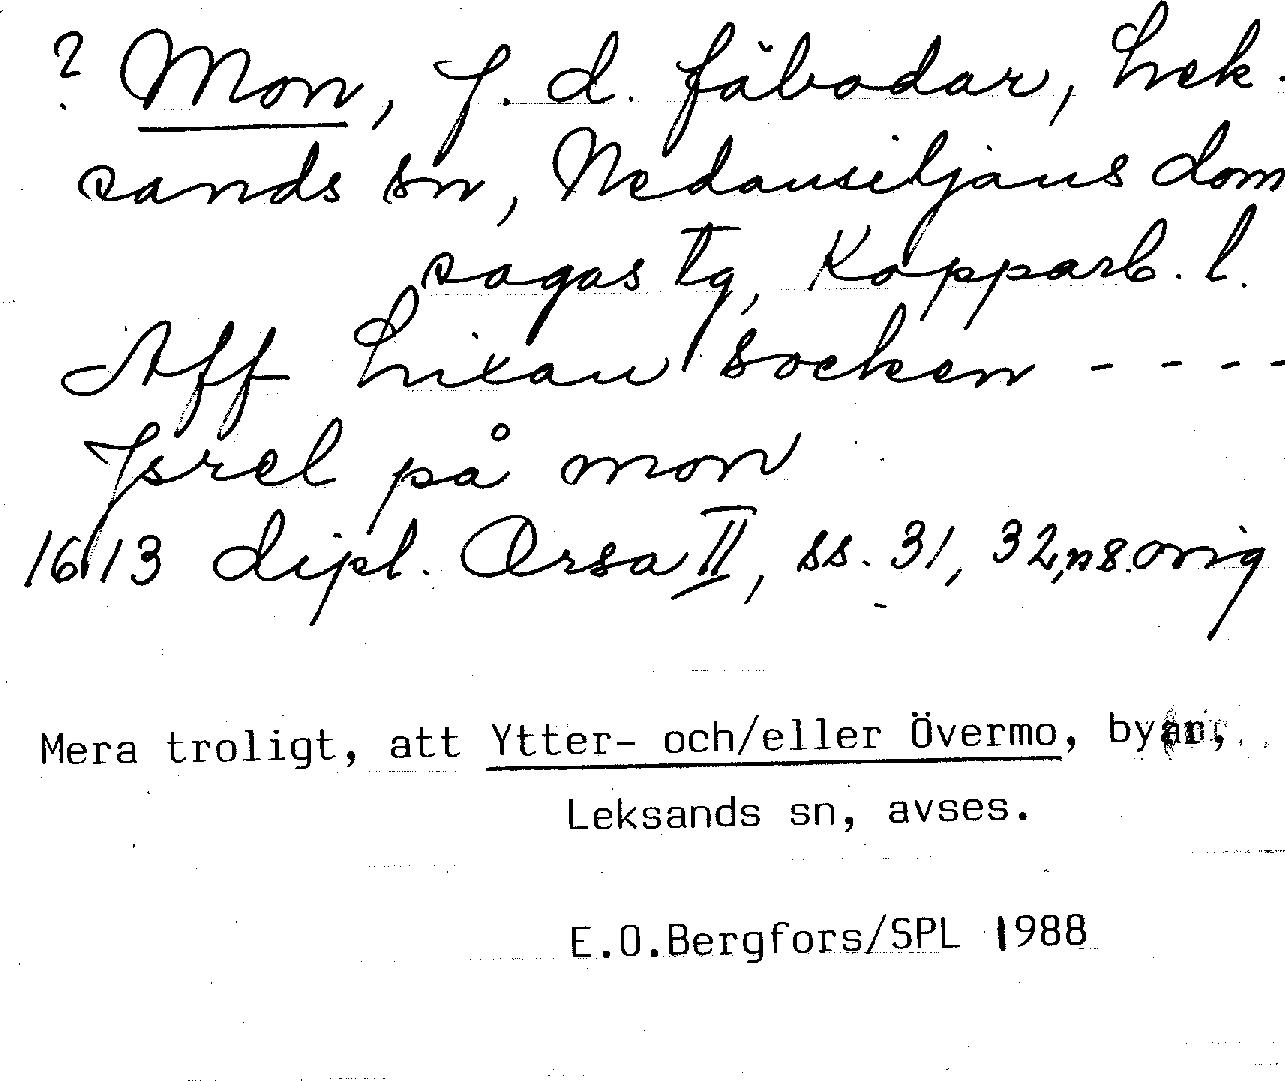 ? Mon, f. d. fäbodar, Lek-
sands sn, Nedansiljans dom
sagas tg, Kopparb. l.
Aff Lixan socken - - - -
Jsrel på mon
1613 dipl. Orsa II, ss. 31, 32, n 8. orig
Mera troligt, att Ytter- och/eller Övermo, byar,
Leksands sn, avses.
E.O.Bergfors/SPL 1988